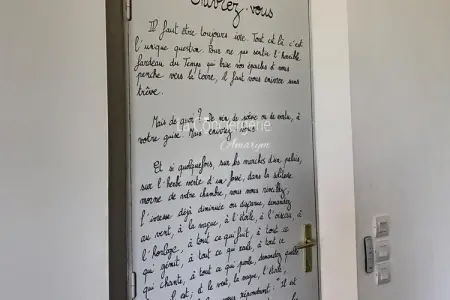 Enivrez-vous
Il faut être toujours ivre. Tout est là: c'est
l'unique question. Pour ne pas sentir l'horrible
fardeau du Temps qui brise vos épaules et vous
penche vers la terre, il faut vous enivrer sans
trêve.
Mais de quoi? De vin, de poésie ou de vertu, à
votre guise. Mais enivrez-vous
La Conciergerie
Et si quelquefois, sur les marches d'un palais,
sur l'herbe verte d'un fossé, dans la solitude
morne de votre chambre, vous vous réveillez,
l'ivresse déjà diminuée ou disparue, demandez
au vent, à la vague, à l'étoile, à l'oiseau, à
l'horloge, à tout ce qui fuit, à tout ce
qui gémit, à tout ce qui roule, à tout ce
qui chante, à tout ce qui parle, demandez quelle
il est; et le vent, la vague, l'étoile,
vous répondront: "Il est